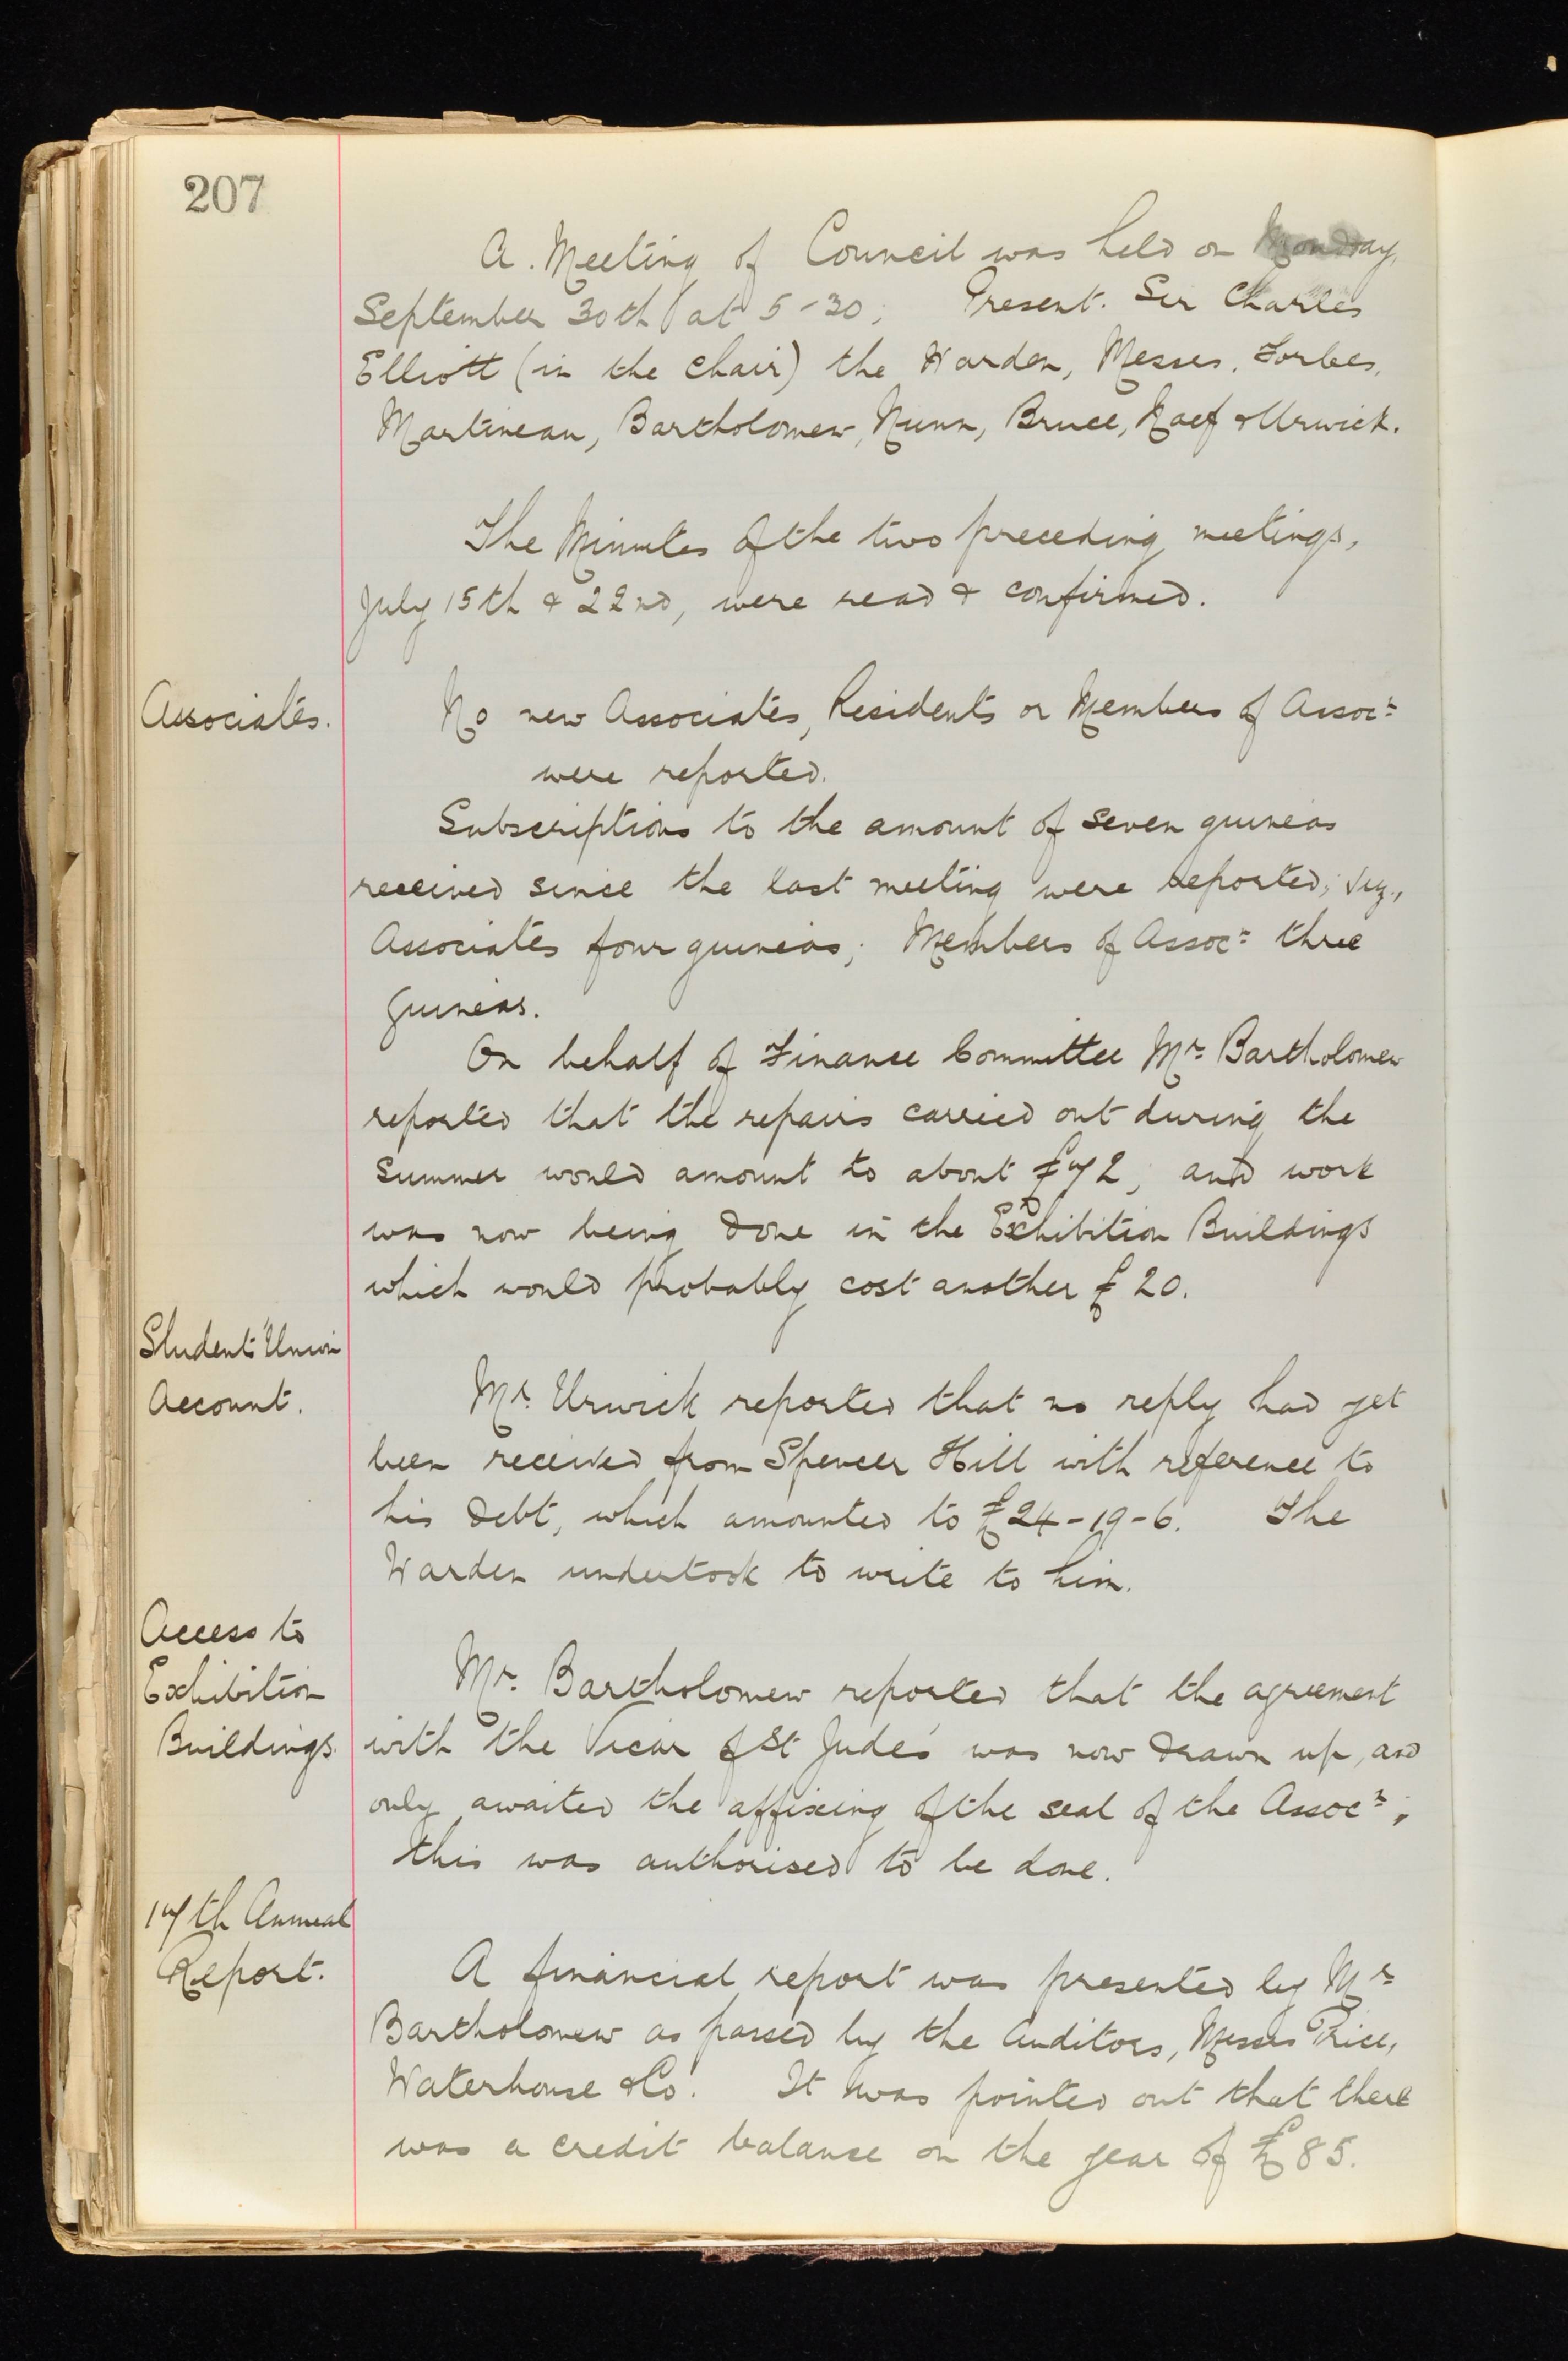 207
A. Meeting of Council was held on Monday,
September 30th at 5-30; Present. Sir Charles
Elliott (in the chair) the Warden, Messrs. Forbes,
Martineau, Bartholomew, Nunn, Bruce, Naef & Urwick.
The Minutes of the two preceding meetings,
July 15th & 22nd, were read & confirmed.
Associates.
No new Associates, Residents or Members of Assocn
were reported.
Subscriptions to the amount of seven guineas
received since the last meeting were reported; viz.,
Associates four guineas; Members of Assocn three
guineas.
On behalf of Finance Committee Mr. Bartholomew
reported that the repairs carried out during the
summer would amount to about £72; and work
was now being done in the Exhibition Buildings
which would probably cost another £20.
Students' Union
Account.
Mr. Urwick reported that no reply had yet
been received from Spencer Hill with reference to
his debt, which amounted to £24-19-6. The
Warden undertook to write to him.
Access to
Exhibition
Buildings.
Mr. Bartholomew reported that the agreement
with the Vicar of St Jude's was now drawn up, and
only awaited the affixing of the seal of the Assocn;
this was authorised to be done.
17th Annual
Report.
A financial report was presented by Mr
Bartholomew as passed by the Auditors, Messrs Price,
Waterhouse & Co. It was pointed out that there
was a credit balance on the year of £85.